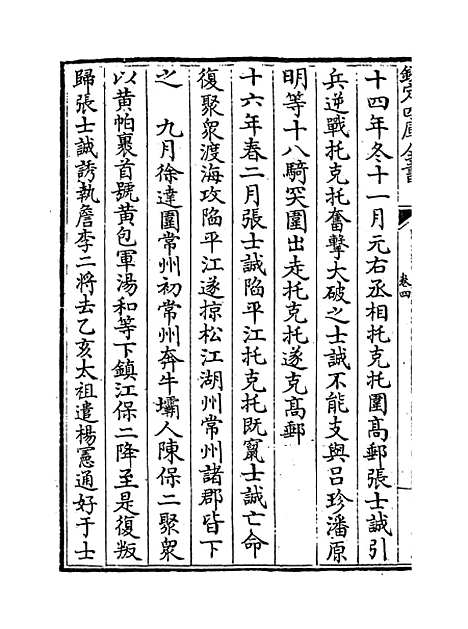 欽定四庫全書
卷四
十四年冬十一月元右丞相托克托圍高郵張士誠引
兵逆戰托克托奮擊大破之士誠不能支與吕珍潘原
明等十八騎突圍出走托克托遂克高郵
十六年春二月張士誠陷平江托克托既竄士誠亡命
復聚衆渡海攻陷平江遂掠松江湖州常州諸郡皆下
之　九月徐達圍常州初常州奔牛壩人陳保二聚衆
以黄帕裹首號黄包軍湯和等下鎮江保二降至是復叛
歸張士誠誘執詹李二將去乙亥太祖遣楊憲通好于士